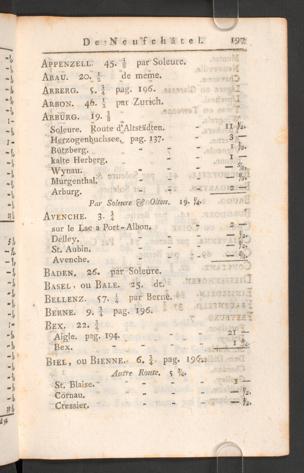 De Neufchâtel. 197
APPENZELL. 45. 1/8 par Soleure.
ARAU. 20. 1/2 de meme.
ARBERG. 5. 3/4 pag. 196.
ARBON. 46. 1/2 par Zurich.
ARBURG. 19. 1/8
Soleure. Route d'Altstädten. - 11 1/2.
Herzogenbuchsee, pag. 137. - - 3 -
Bützberg. - - - - 1 -
kalte Herberg. - - - 1 -
Wynau. - - - -
Murgenthal. - - - -
Arburg. - - - -
Par Soleure & Olten. 19.
AVENCHE. 3. 3/4
sur le Lac a Port-Albon. - - 2 -
Delley. - - - -
St. Aubin. - - - -
Avenche. - - - -
BADEN. 26. par Soleure.
BASEL, ou BALE. 25. dt.
BELLENZ. 57. 1/4 par Berne.
BERNE. 9. 3/4 pag. 196.
BEX. 22. 3/4
Aigle. pag. 194. - - - 21 -
Bex. - - - - 1
BIEL, ou BIENNE. 6. 1/4. pag. 196.
Autre Route. 5
St. Blaise. - - - - 1 -
Cornau. - - - -
Cressier. - - - -